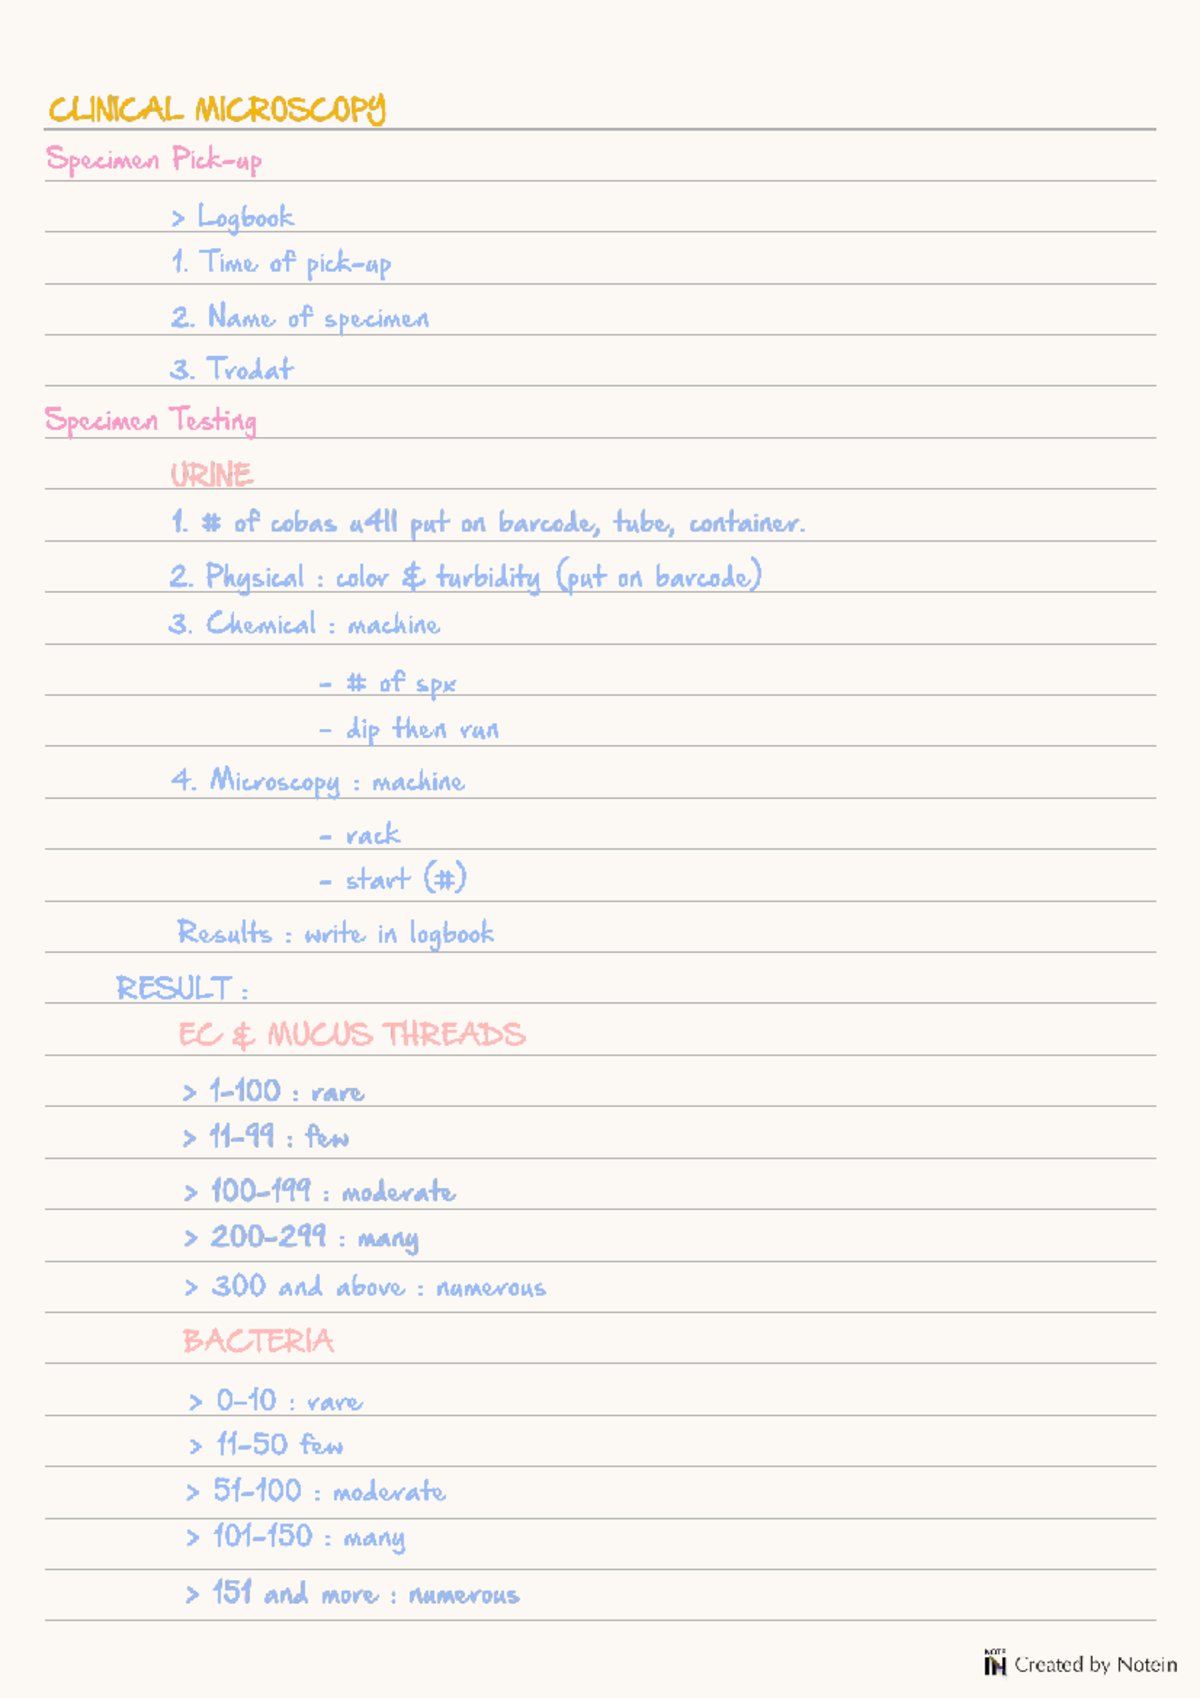 CLINICAL MICROSCOPY
Specimen Pick-up
> Logbook
1. Time of pick-up
2. Name of specimen
3. Trodat
Specimen Testing
URINE
1. # of cobas u411 put on barcode, tube, container.
2. Physical : color & turbidity (put on barcode)
3. Chemical : machine
- # of spx
- dip then run
4. Microscopy : machine
- rack
- start (#)
Results : write in logbook
RESULT :
EC & MUCUS THREADS
> 1-100 : rare
> 11-99 : few
> 100-199 : moderate
> 200-299 : many
> 300 and above : numerous
BACTERIA
> 0-10 : rare
> 11-50 few
> 51-100 : moderate
> 101-150 : many
> 151 and more : numerous
NOTE IN Created by Notein